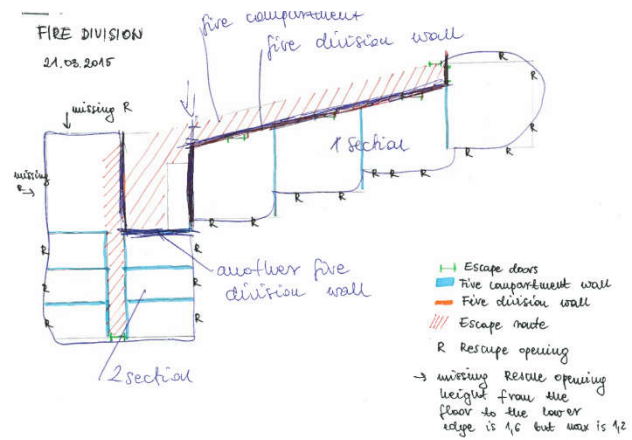 fire compartment
FIRE DIVISION
fire division wall
21.03.2015
R
missing R
R
R
1 section
missing
R
R
R
R
R
R
R
R
R
R
R
another fire
division wall
R
R
R
R
2 section
Escape doors
Fire compartment wall
Fire division wall
Escape route
R Rescupe opening
→ missing Rescue opening
height from the
floor to the lower
edge is 1,6 but max is 1,2